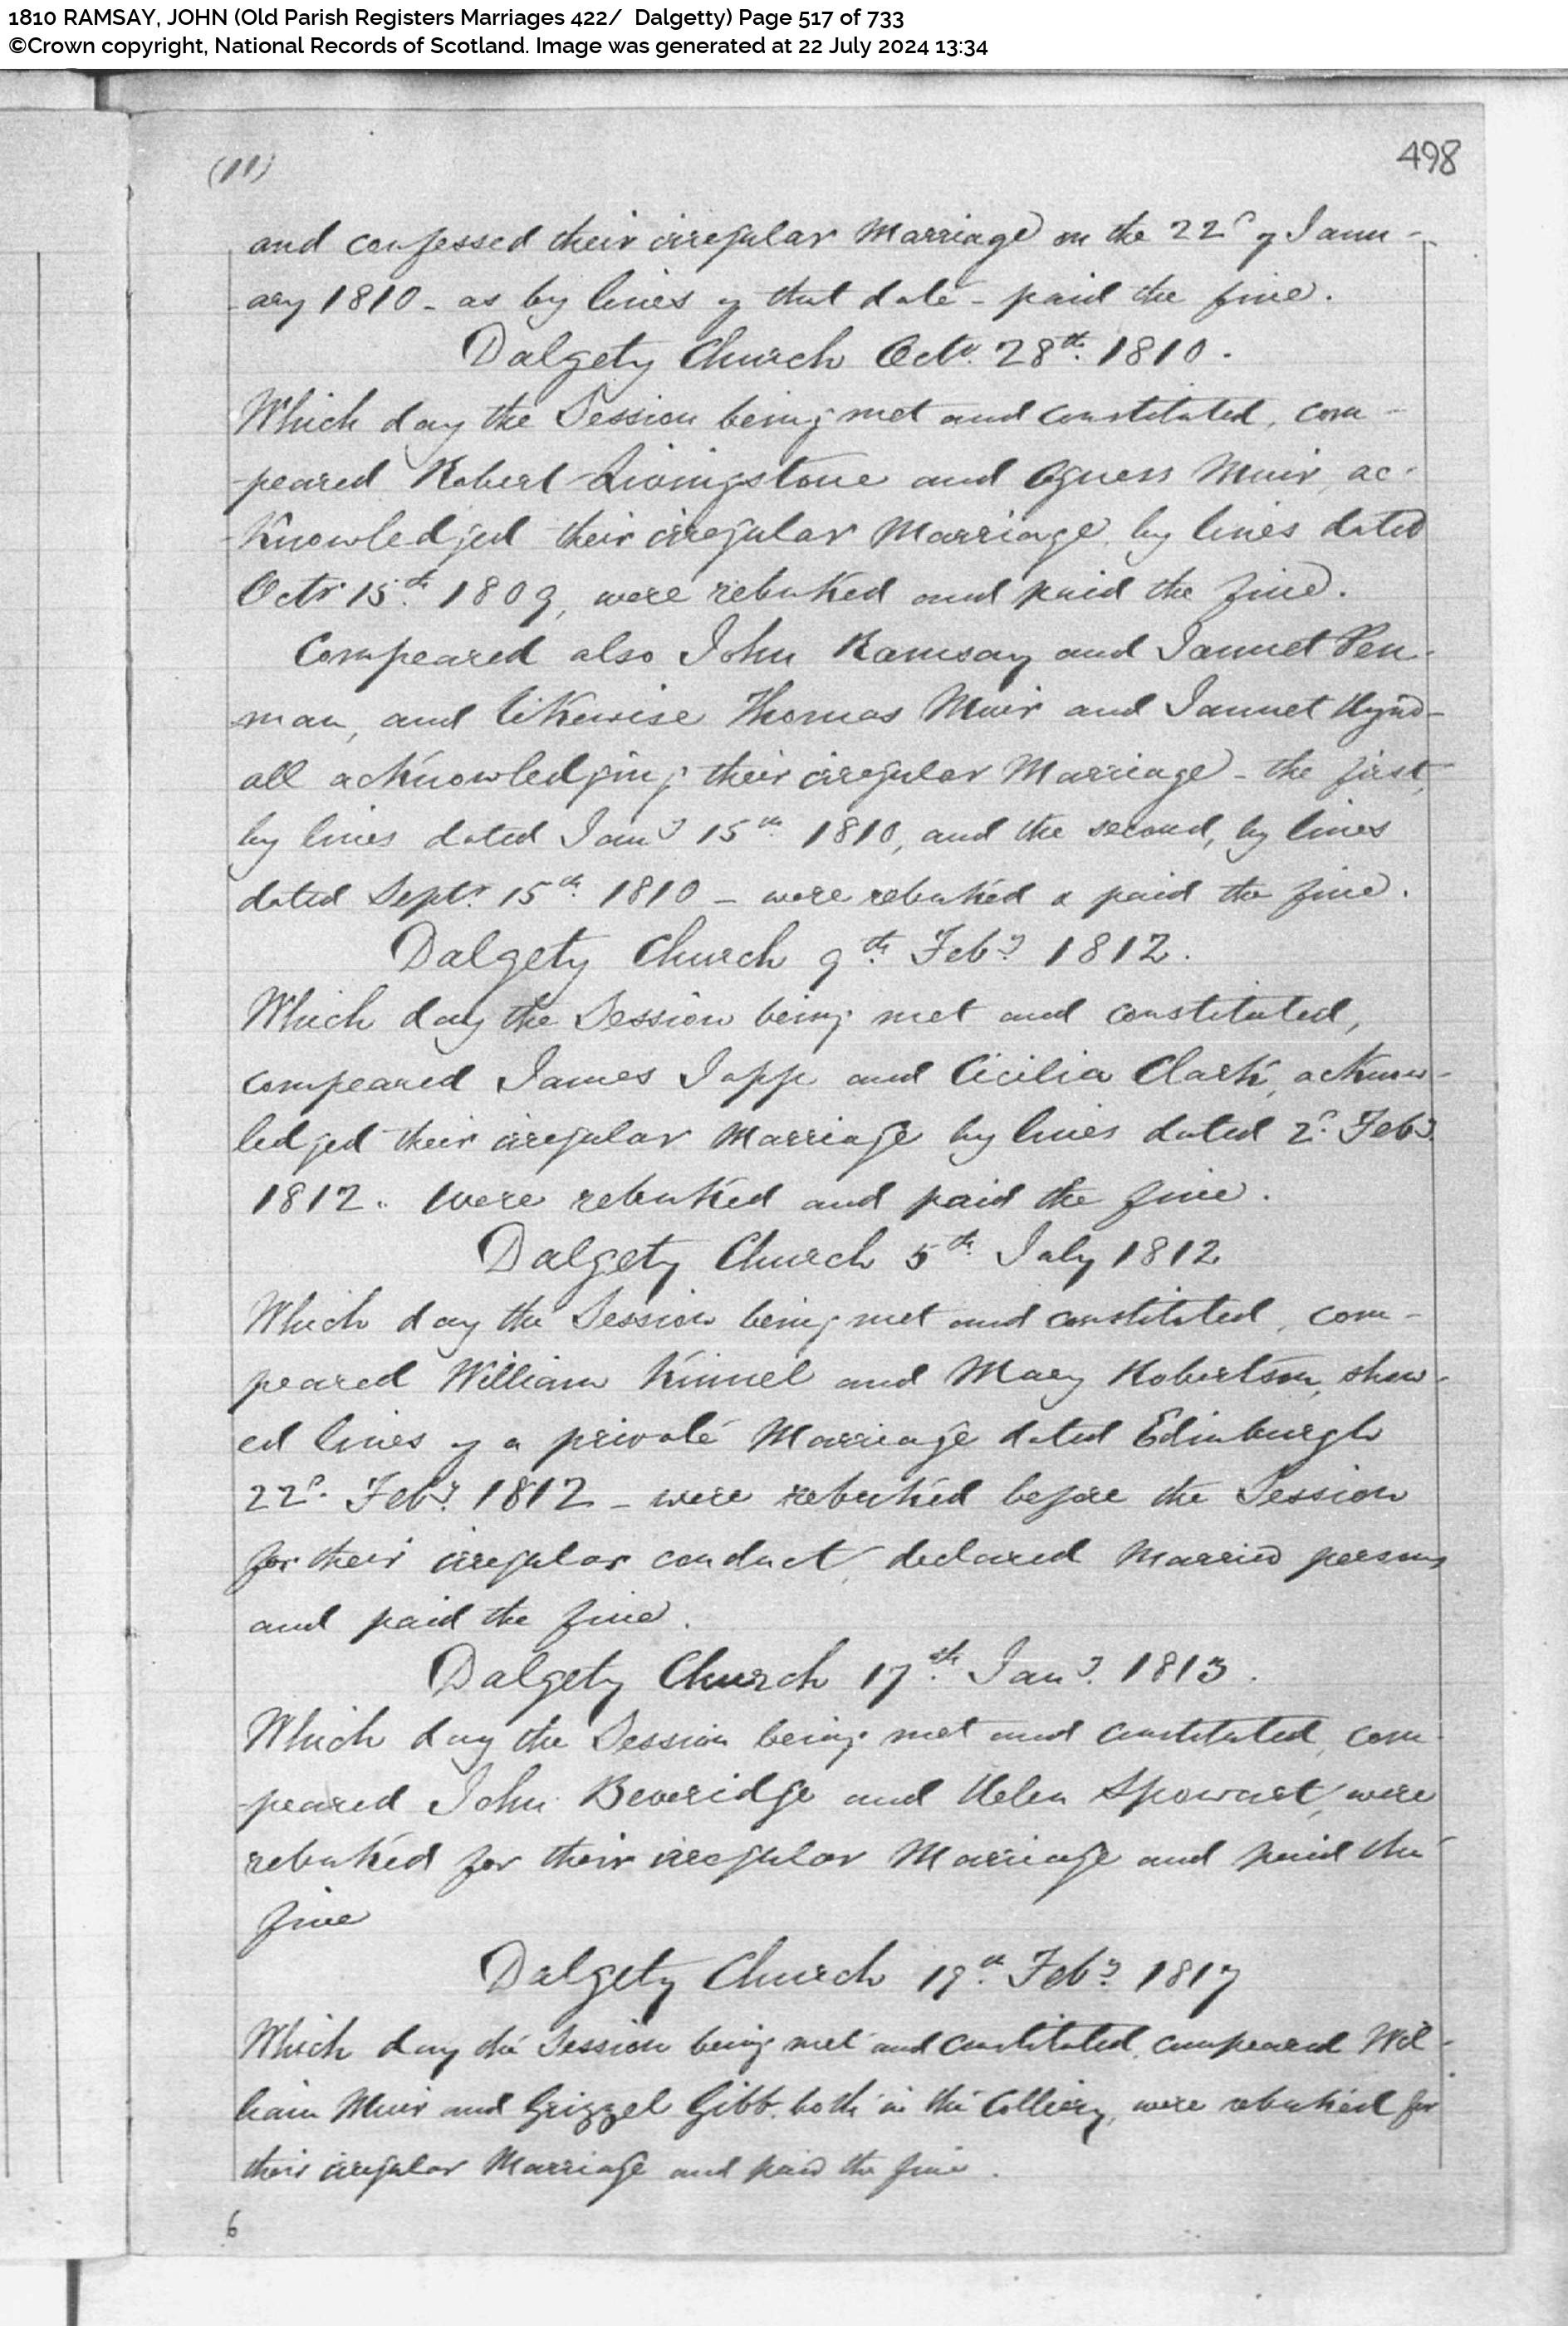 1810 RAMSAY, JOHN (Old Parish Registers Marriages 422/ Dalgetty) Page 517 of 733
©Crown copyright, National Records of Scotland. Image was generated at 22 July 2024 13:34
(11)
498
and confessed their irregular Marriage on the 22d of Janu-
-ary 1810 - as by lines of that date - paid the fine.
Dalgety Church Octr. 28th. 1810.
Which day the Session being met and constituted, com-
-peared Robert Livingstone and Agness Muir, ac-
-knowledged their irregular Marriage, by lines dated
Octr 15th. 1809, were rebuked and paid the fine.
Compeared also John Ramsay and Jannet Pen-
-man, and likewise Thomas Muir and Jannet Hynd-
all acknowledging their irregular Marriage - the first,
by lines dated Jany 15th. 1810, and the second, by lines
dated Septr. 15th. 1810 - were rebuked & paid the fine.
Dalgety Church 9th. Feby. 1812.
Which day the Session being met and constituted,
compeared James Japp and Cicilia Clark, acknow-
ledged their irregular Marriage by lines dated 2d. Feby.
1812. Were rebuked and paid the fine.
Dalgety Church 5th. July 1812
Which day the Session being met and constituted, com-
peared William Kinnel and Mary Robertson, show-
ed lines of a private Marriage dated Edinburgh
22d. Feby. 1812 - were rebuked before the Session
for their irregular conduct, declared Married persons
and paid the fine.
Dalgety Church 17th. Jany. 1813.
Which day the Session being met and constituted, com-
-peared John Beveridge and Helen Spowart, were
rebuked for their irregular Marriage and paid the
fine
Dalgety Church 19th. Feby. 1817
Which day the Session being met and constituted, compeared Wil-
liam Muir and Grizzel Gibb, both in the Colliery, were rebuked for
their irregular Marriage and paid the fine.
6